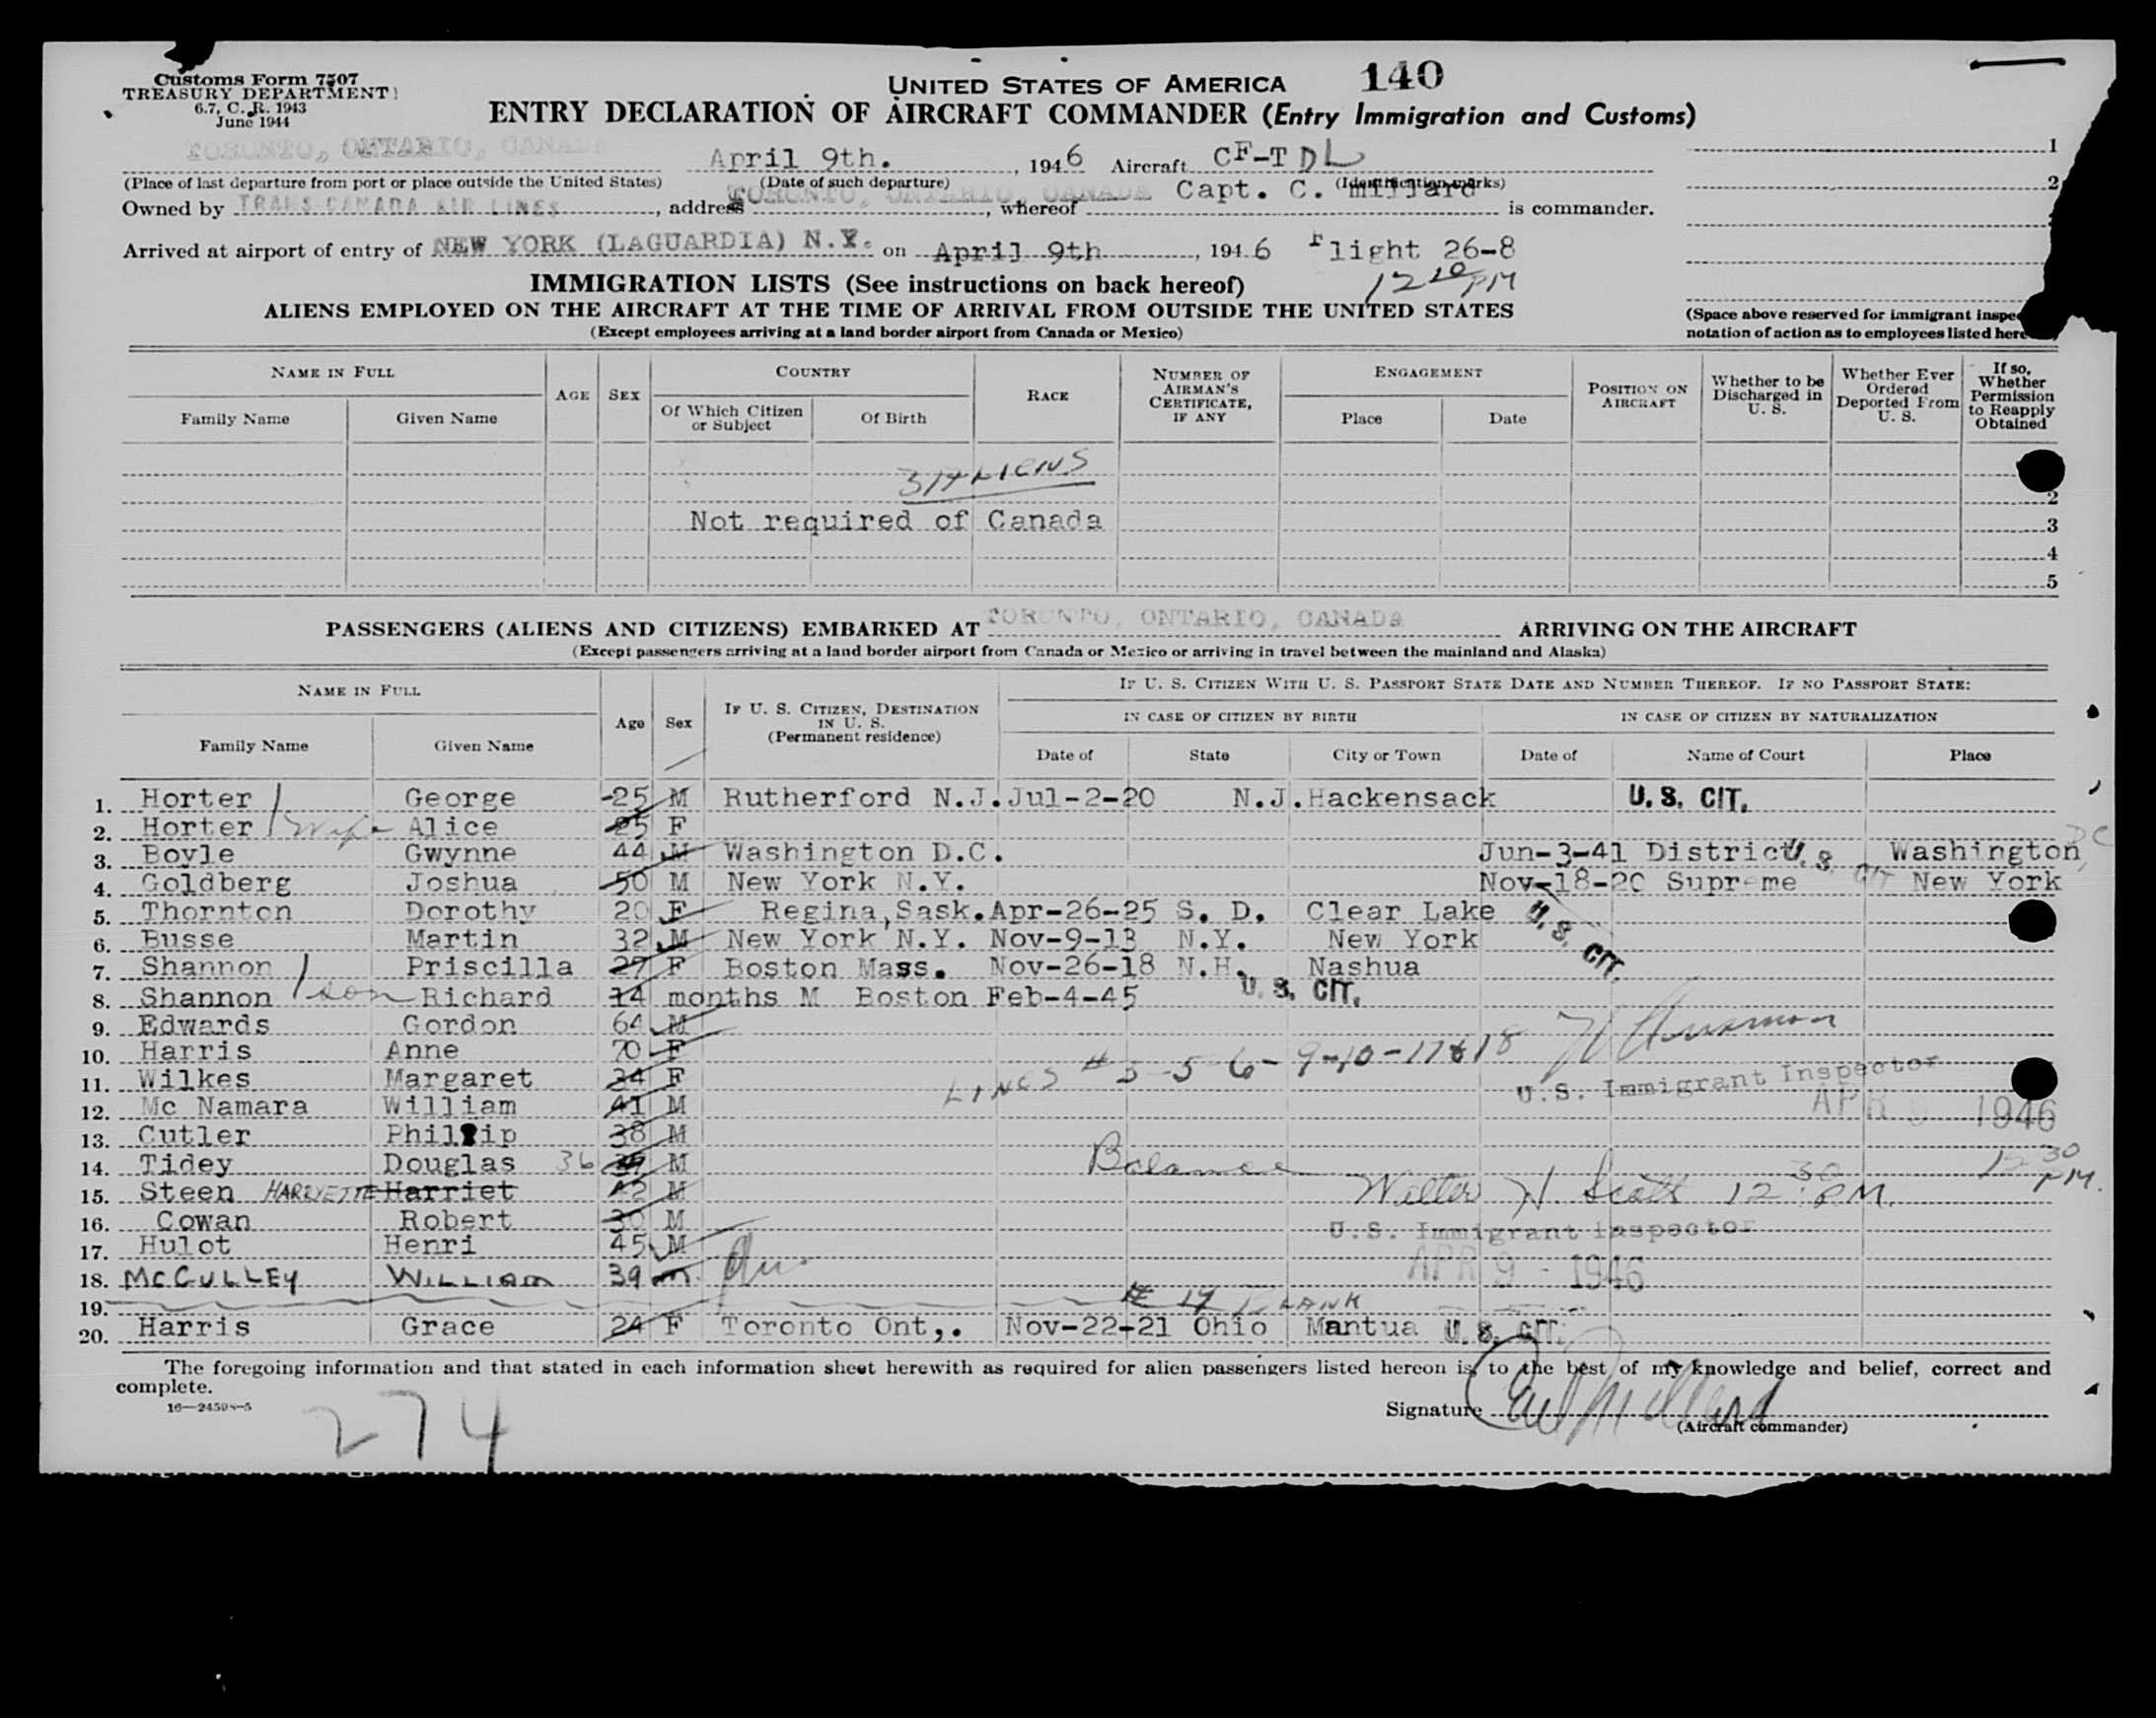 Customs Form 7507
TREASURY DEPARTMENT
6.7, C. R. 1943
June 1944
UNITED STATES OF AMERICA 140
ENTRY DECLARATION OF AIRCRAFT COMMANDER (Entry Immigration and Customs)
TORONTO, ONTARIO, CANADA April 9th. , 1946 Aircraft CF-TDL
(Place of last departure from port or place outside the United States) (Date of such departure) (Identification marks)
Owned by TRANS CANADA AIR LINES, address TORONTO, ONTARIO, CANADA, whereof Capt. C. Millard is commander.
Arrived at airport of entry of NEW YORK (LAGUARDIA) N.Y. on April 9th, 1946 Flight 26-8
12 10 PM
1
2
IMMIGRATION LISTS (See instructions on back hereof)
ALIENS EMPLOYED ON THE AIRCRAFT AT THE TIME OF ARRIVAL FROM OUTSIDE THE UNITED STATES
(Except employees arriving at a land border airport from Canada or Mexico)
(Space above reserved for immigrant inspe
notation of action as to employees listed here
NAME IN FULL AGE SEX COUNTRY RACE NUMBER OF AIRMAN'S CERTIFICATE, IF ANY ENGAGEMENT POSITION ON AIRCRAFT Whether to be Discharged in U. S. Whether Ever Ordered Deported From U. S. If so, Whether Permission to Reapply Obtained
Family Name Given Name Of Which Citizen or Subject Of Birth Place Date
3 ALIENS
2
Not required of Canada 3
4
5
PASSENGERS (ALIENS AND CITIZENS) EMBARKED AT TORONTO, ONTARIO, CANADA ARRIVING ON THE AIRCRAFT
(Except passengers arriving at a land border airport from Canada or Mexico or arriving in travel between the mainland and Alaska)
NAME IN FULL Age Sex IF U. S. CITIZEN, DESTINATION IN U. S. (Permanent residence) IF U. S. CITIZEN WITH U. S. PASSPORT STATE DATE AND NUMBER THEREOF. IF NO PASSPORT STATE:
IN CASE OF CITIZEN BY BIRTH IN CASE OF CITIZEN BY NATURALIZATION
Family Name Given Name Date of State City or Town Date of Name of Court Place
1. Horter George 25 M Rutherford N.J. Jul-2-20 N.J. Hackensack U. S. CIT.
2. Horter Wife Alice 25 F
3. Boyle Gwynne 44 M Washington D.C. Jun-3-41 District U. S. CIT Washington DC
4. Goldberg Joshua 50 M New York N.Y. Nov-18-20 Supreme New York
5. Thornton Dorothy 20 F Regina, Sask. Apr-26-25 S. D. Clear Lake U. S. CIT.
6. Busse Martin 32 M New York N.Y. Nov-9-13 N.Y. New York
7. Shannon Priscilla 27 F Boston Mass. Nov-26-18 N.H. Nashua
8. Shannon son Richard 14 months M Boston Feb-4-45 U. S. CIT.
9. Edwards Gordon 64 M
10. Harris Anne 70 F LINES # 3-5-6-9-10-17&18
11. Wilkes Margaret 34 F U.S. Immigrant Inspector
12. Mc Namara William 41 M APR 1946
13. Cutler Phillip 38 M
14. Tidey Douglas 36 M Balance 12 30 PM.
15. Steen HARRYETTE Harriet 42 M Walter H. Scott 12 30 PM.
16. Cowan Robert 30 M U.S. Immigrant Inspector
17. Hulot Henri 45 M APR 9 - 1946
18. McCULLEY WILLIAM 39 M.
19. # 19 BLANK
20. Harris Grace 24 F Toronto Ont,. Nov-22-21 Ohio Mantua U. S. CIT.
The foregoing information and that stated in each information sheet herewith as required for alien passengers listed hereon is, to the best of my knowledge and belief, correct and
complete.
16—24598-5
274
Signature Carl Millard
(Aircraft commander)